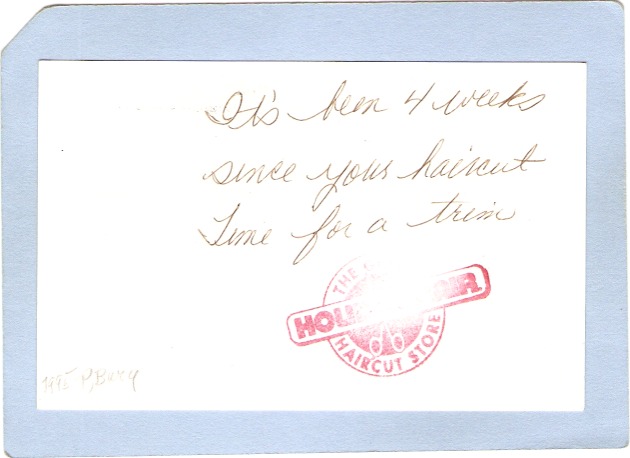 It's been 4 weeks
since your haircut
Time for a trim
THE
HOL
HAIR
HAIRCUT STORE
1995